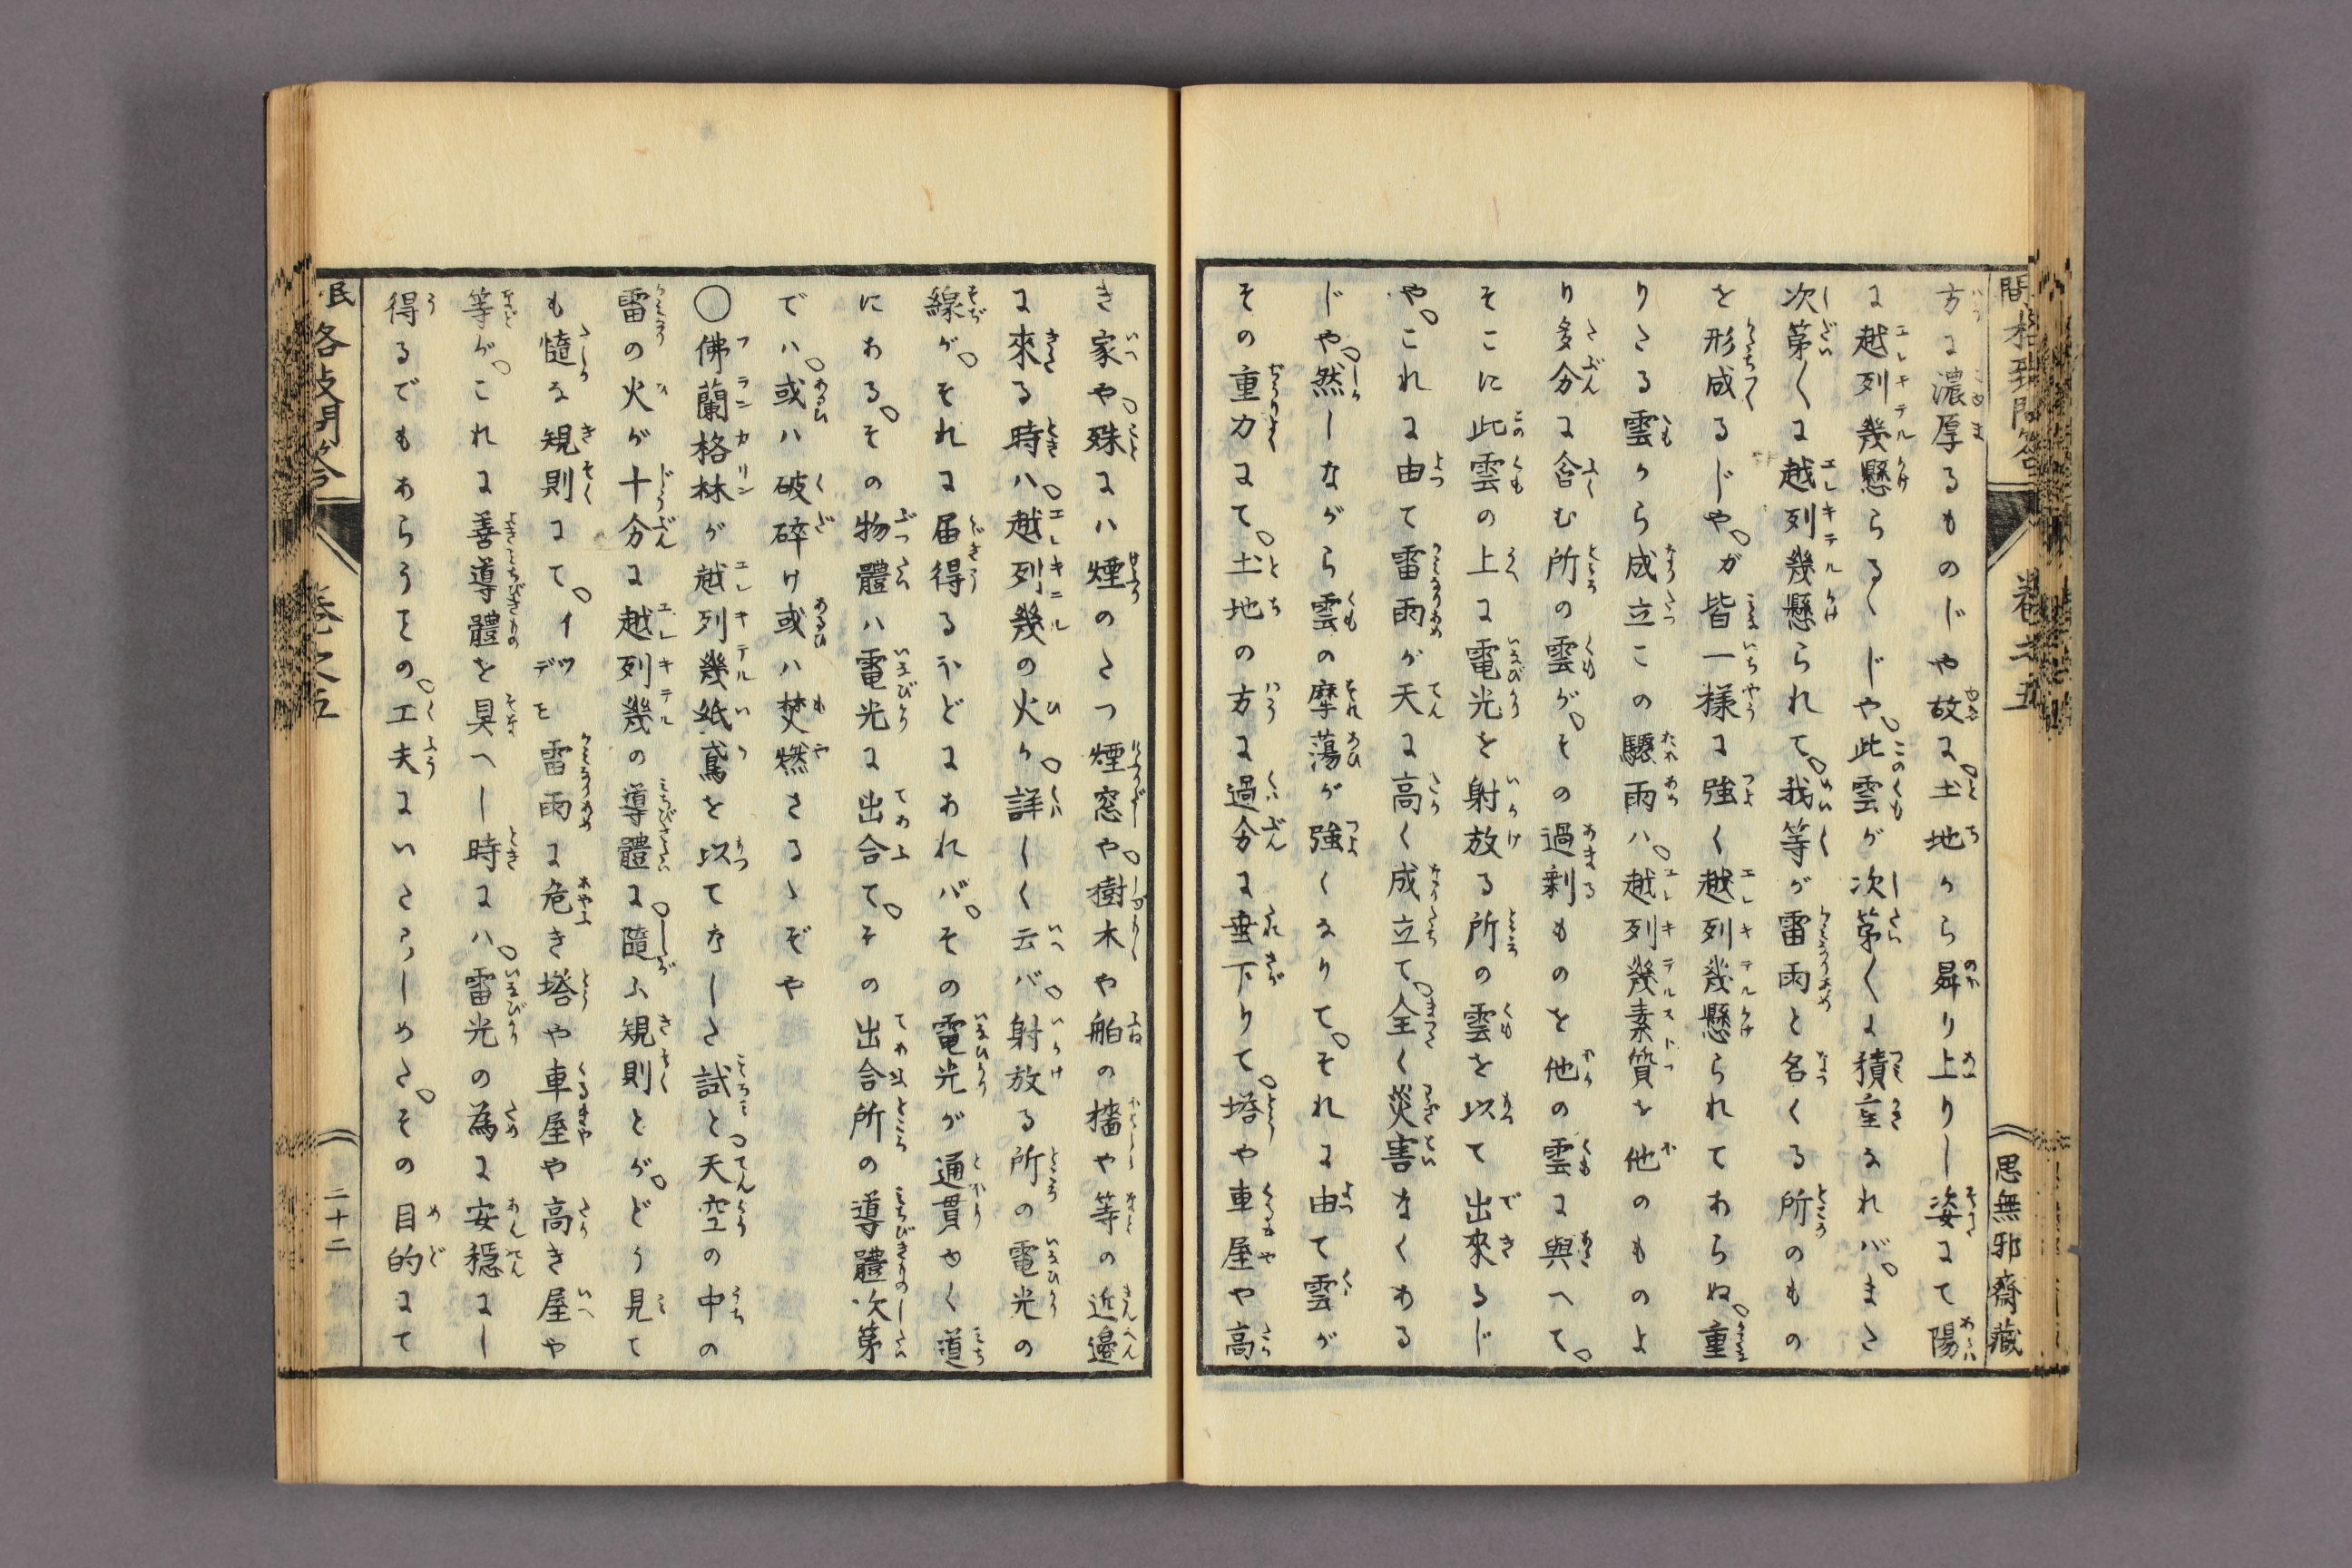 民間格致問答 巻之五 思無邪齋藏
方に濃厚るものじや故に。土地から昇り上りし姿にて陽
に越列幾懸らるゝじや。此雲が次第〱に積重なれバ。まさ
次第〱に越列幾懸られて。我等が雷雨と名くる所のもの
を形成るじや。が皆一様に強く越列幾懸られてあらぬ。重
りたる雲から成立この驟雨ハ。越列幾素質を他のものよ
り多分に含む所の雲が。その過剰ものを他の雲に與へて。
そこに此雲の上に電光を射放る所の雲を以て出來るじ
や。これに由て雷雨が天に高く成立て。全く災害なくある
じや。然しながら雲の摩蕩が強くなりて。それに由て雲が
その重力にて。土地の方に過分に垂下りて。塔や車屋や高
き家や。殊にハ煙のたつ煙窓や。樹木や舶の檣や等の近邉
に來る時ハ。越列幾の火か。詳しく云バ。射放る所の電光の
線が。それに届得るほどにあれバ。その電光が通貫ゆく道
にある。その物體ハ電光に出合て。その出合所の導體次第
でハ。或ハ破碎け或ハ焚燃さるゝぞや
〇佛蘭格林が越列幾紙鳶を以てなした試と天空の中の
雷の火が十分に越列幾の導體に。隨ふ規則とが。どう見て
も慥な規則にて。イツデモ雷雨に危き塔や車屋や高き屋や
等が。これに善導體を具へし時にハ。雷光の為に安穏にし
得るでもあらうその。工夫にいたらしめた。その目的にて
民間格致問答 巻之五 二十二